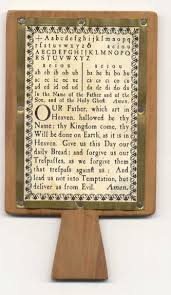 + A a b c d e f g h i j k l m n o p q
r s t u v w x y z & a e i o u
A B C D E F G H I J K L M N O P Q
R S T U V W X Y Z
a e i o u
a e i o u
ab eb ib ob ub
ba be bi bo bu
ac ec ic oc uc
ca ce ci co cu
ad ed id od ud
da de di do du
In the Name of the Father and of the
Son, and of the Holy Ghost. Amen.
OUR Father, which art in
Heaven, hallowed be thy
Name; thy Kingdom come, thy
Will be done on Earth, as it is in
Heaven. Give us this Day our
daily Bread; and forgive us our
Treſpaſſes, as we forgive them
that treſpaſs againſt us: And
lead us not into Temptation, but
deliver us from Evil. Amen.